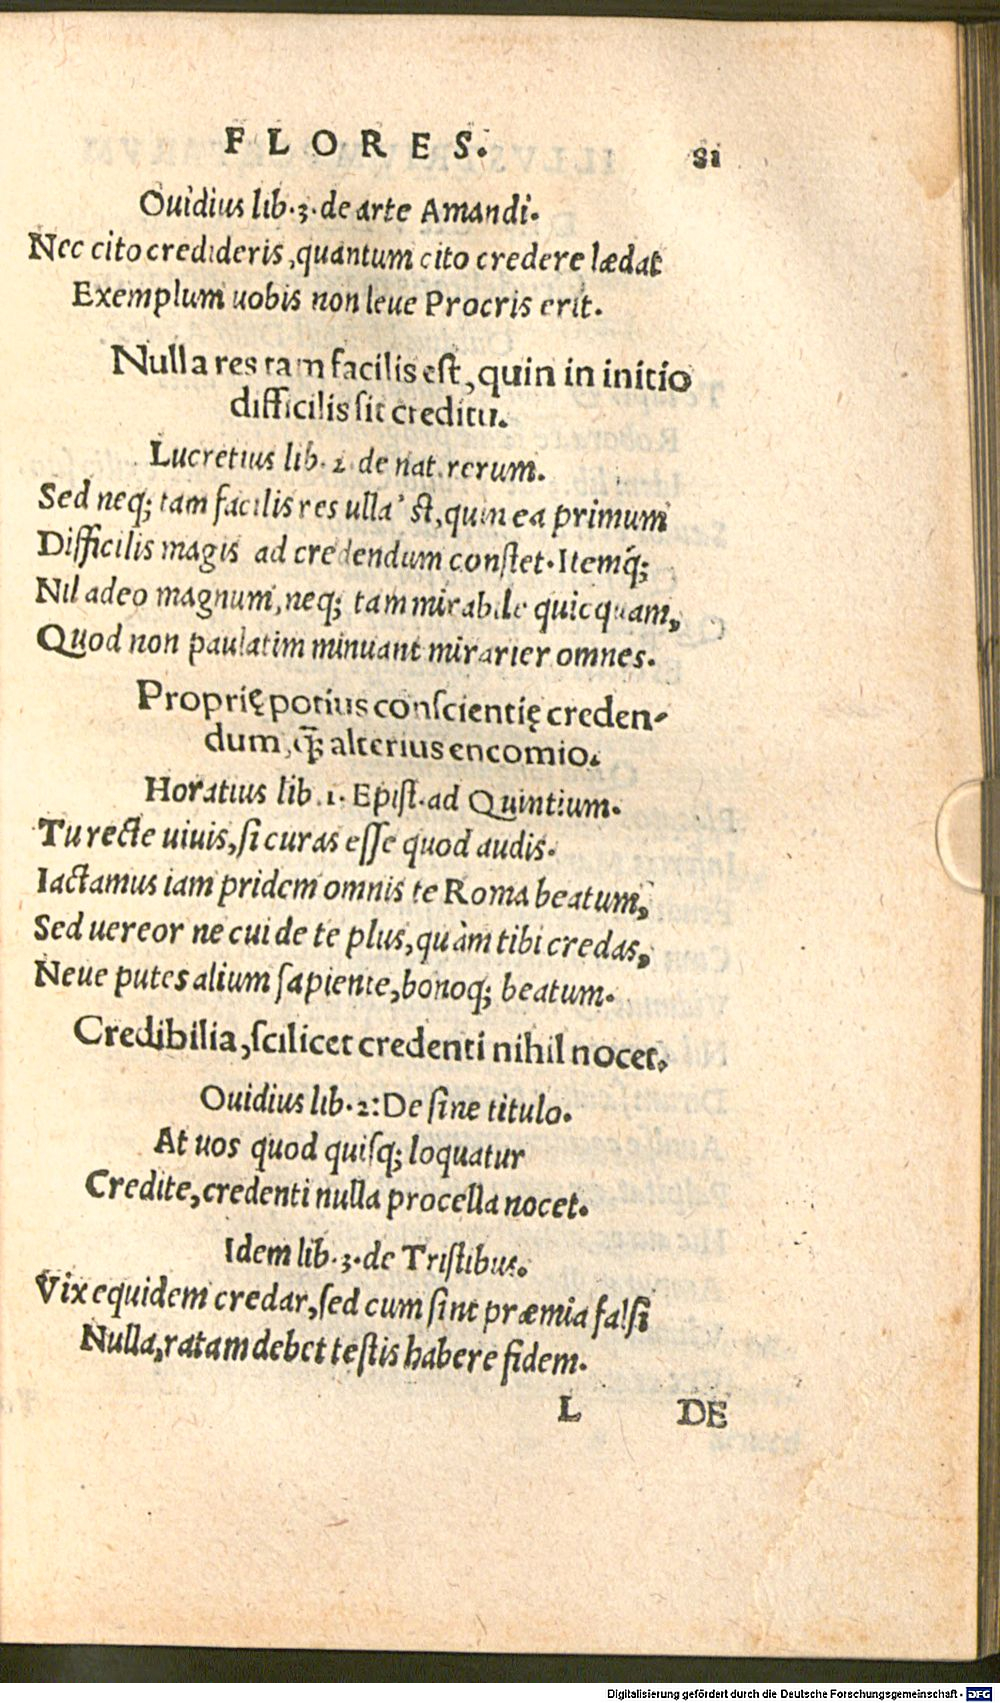 FLORES. 81
Ouidius lib.3.de arte Amandi.
Nec cito credideris,quantum cito credere lædat
Exemplum uobis non leue Procris erit.
Nulla res tam facilis est,quin in initio
difficilis sit creditu.
Lucretius lib. 2. de nat.rerum.
Sed neq; tam facilis res ulla' st,quin ea primum
Difficilis magis ad credendum constet.Itemq́;
Nil adeo magnum,neq; tam mirabile quicquam,
Quod non paulatim minuant mirarier omnes.
Proprię potius conscientię creden-
dum,q̄; alterius encomio.
Horatius lib.1. Epist.ad Quintium.
Tu recte uiuis,si curas esse quod audis.
Iactamus iam pridem omnis te Roma beatum,
Sed uereor ne cui de te plus,quàm tibi credas,
Neue putes alium sapiente,bonoq; beatum.
Credibilia,scilicet credenti nihil nocet.
Ouidius lib.2:De sine titulo.
At uos quod quisq; loquatur
Credite,credenti nulla procella nocet.
Idem lib.3.de Tristibus.
Vix equidem credar,sed cum sint præmia falsi
Nulla,ratam debet testis habere fidem.
L DE
Digitalisierung gefördert durch die Deutsche Forschungsgemeinschaft - DFG